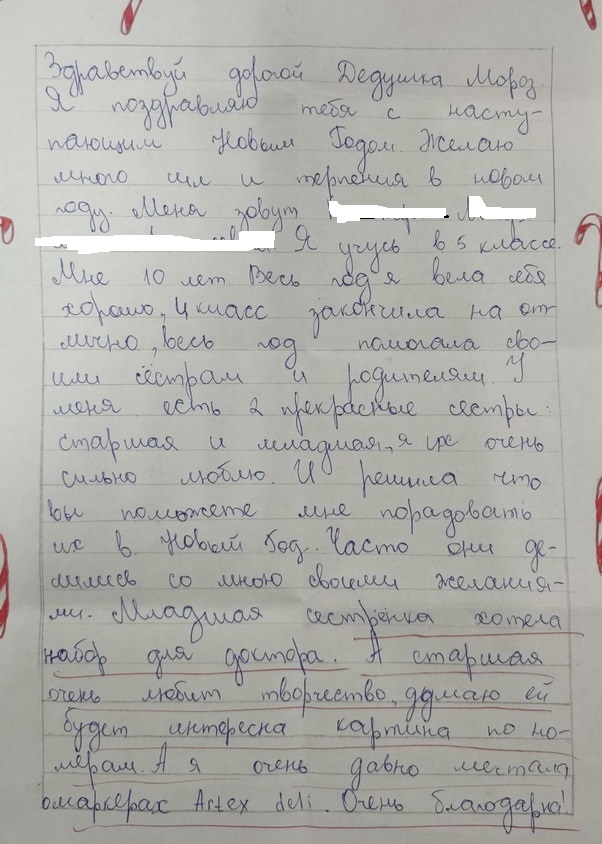 Здравствуй дорогой Дедушка Мороз.
Я поздравляю тебя с насту-
пающим Новым Годом. Желаю
много сил и терпения в новом
году. Меня зовут
Я учусь в 5 классе.
Мне 10 лет. Весь год я вела себя
хорошо, 4 класс закончила на от
лично, весь год помогала сво-
им сёстрам и родителям. У
меня есть 2 прекрасные сестры:
старшая и младшая, я их очень
сильно люблю. И решила что
вы поможете мне порадовать
их в Новый Год. Часто они де-
лились со мною своими желания-
ми. Младшая сестрёнка хотела
набор для доктора. А старшая
очень любит творчество, думаю ей
будет интересна картина по но-
мерам. А я очень давно мечтала
омаркерах Artex deli. Очень благодарна!